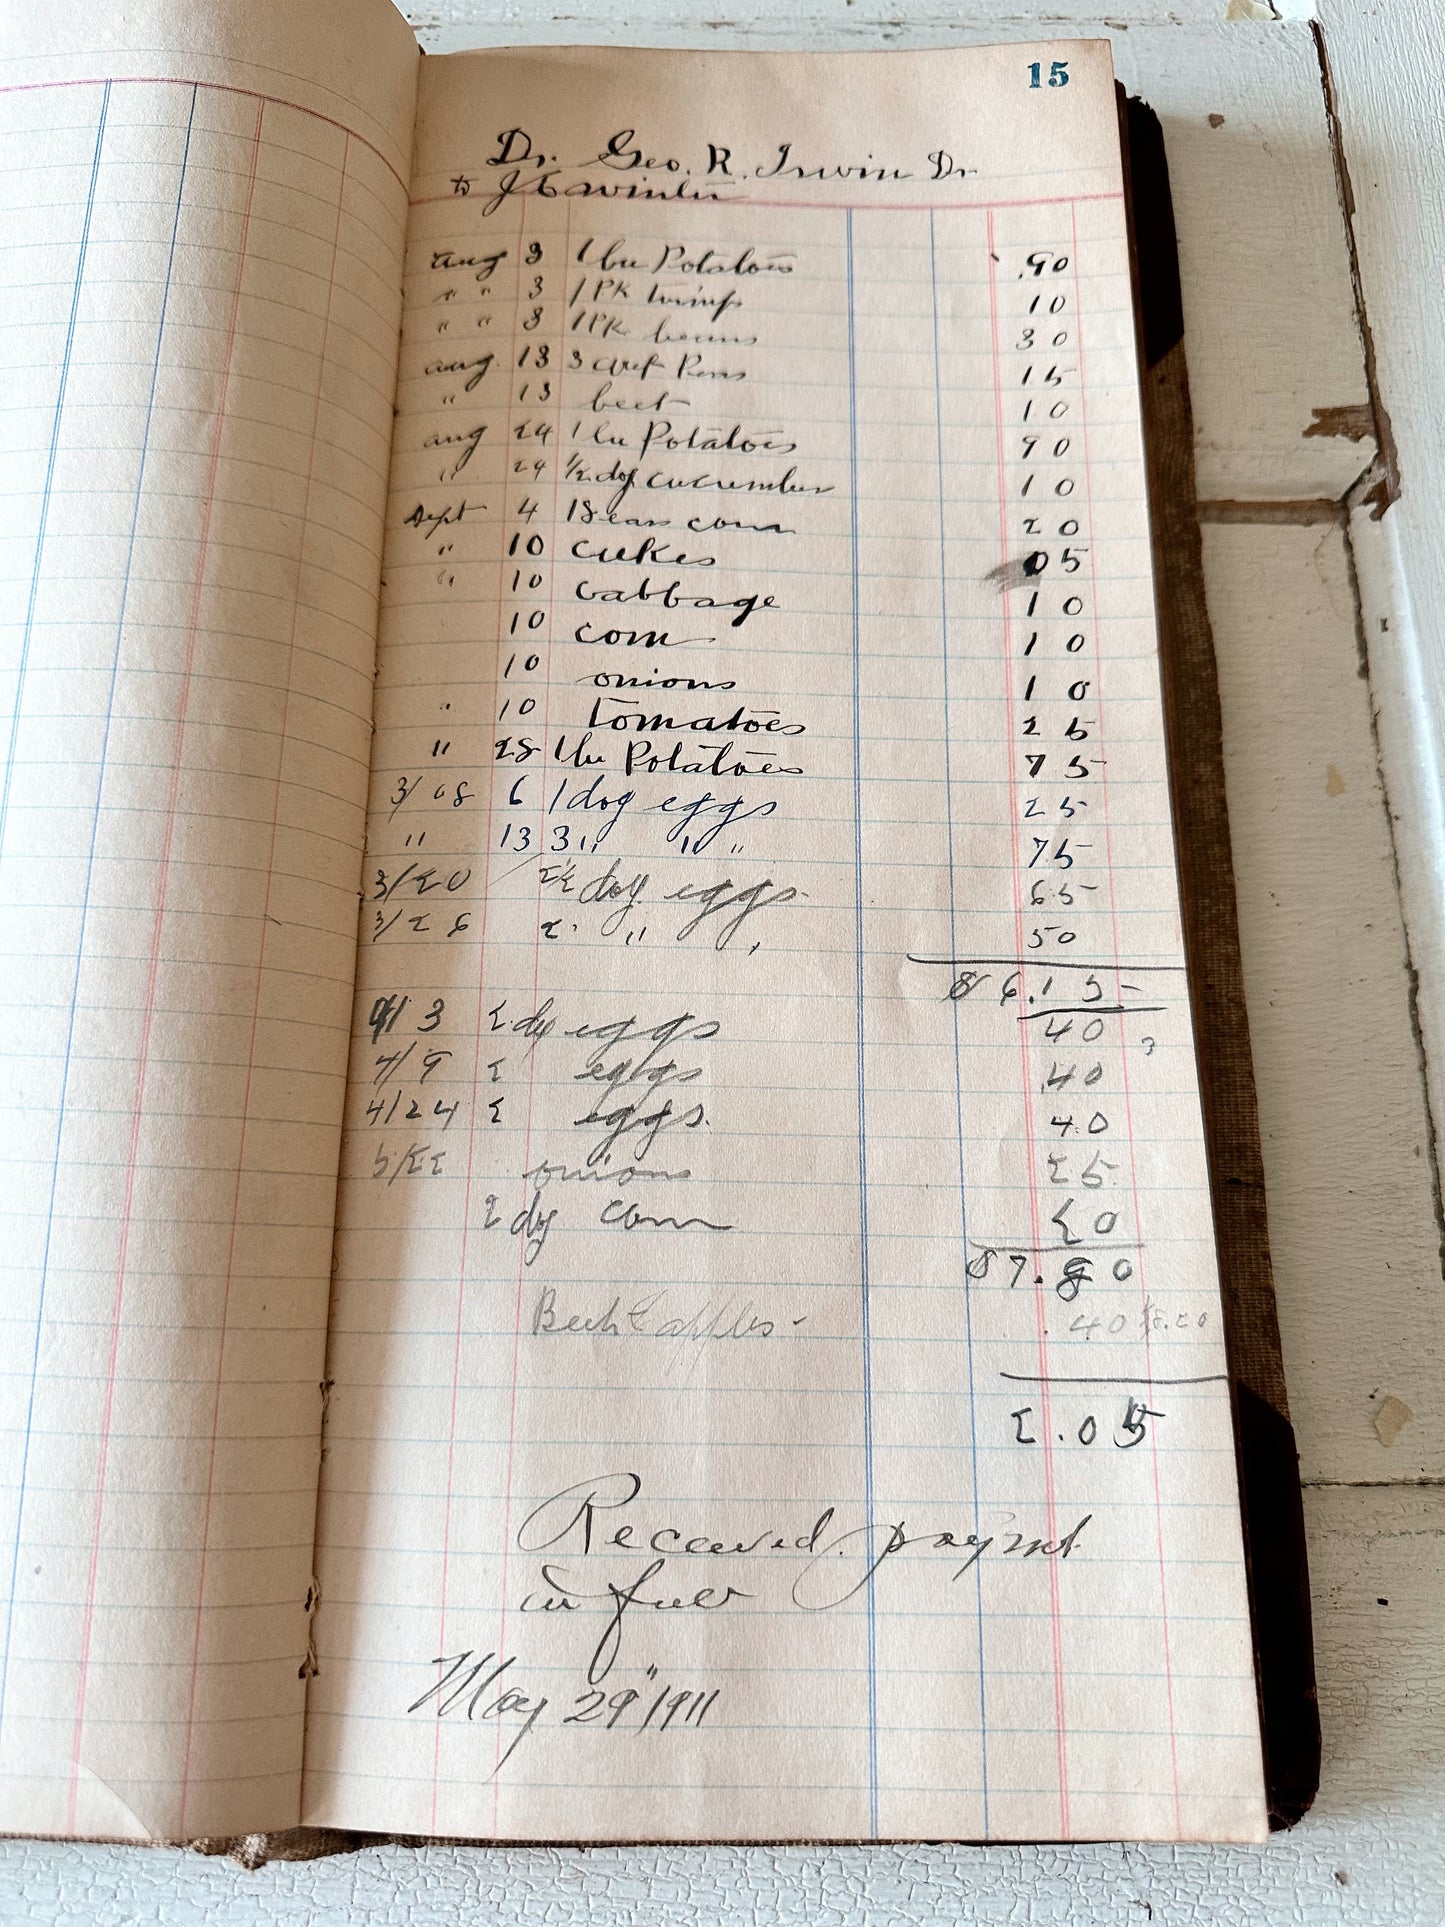 15
Dr. Geo. R. Irwin Dr.
to J E Winter
Aug 3 1 bu Potatoes .90
" " 3 1 PK turnips 10
" " 3 1 PK beans 30
Aug. 13 3 Peas 15
" 13 beet 10
Aug 24 1 bu Potatoes 90
" 24 1/2 doz cucumber 10
Sept 4 18 ears corn 20
" 10 cukes 05
" 10 cabbage 10
10 corn 10
10 onions 10
" 10 tomatoes 25
" 28 1 bu Potatoes 75
3/08 6 1 doz eggs 25
" 13 3 " " " 75
3/20 2 1/2 doz eggs. 65
3/26 2. " " 50
$6.15
4/3 2 dz eggs 40
4/9 2 eggs 40
4/24 2 eggs. 40
5/22 onions 25
2 dz corn 20
$7.80
Beets & apples - 40 $8.20
2.05
Received paymet
in full
May 29" 1911